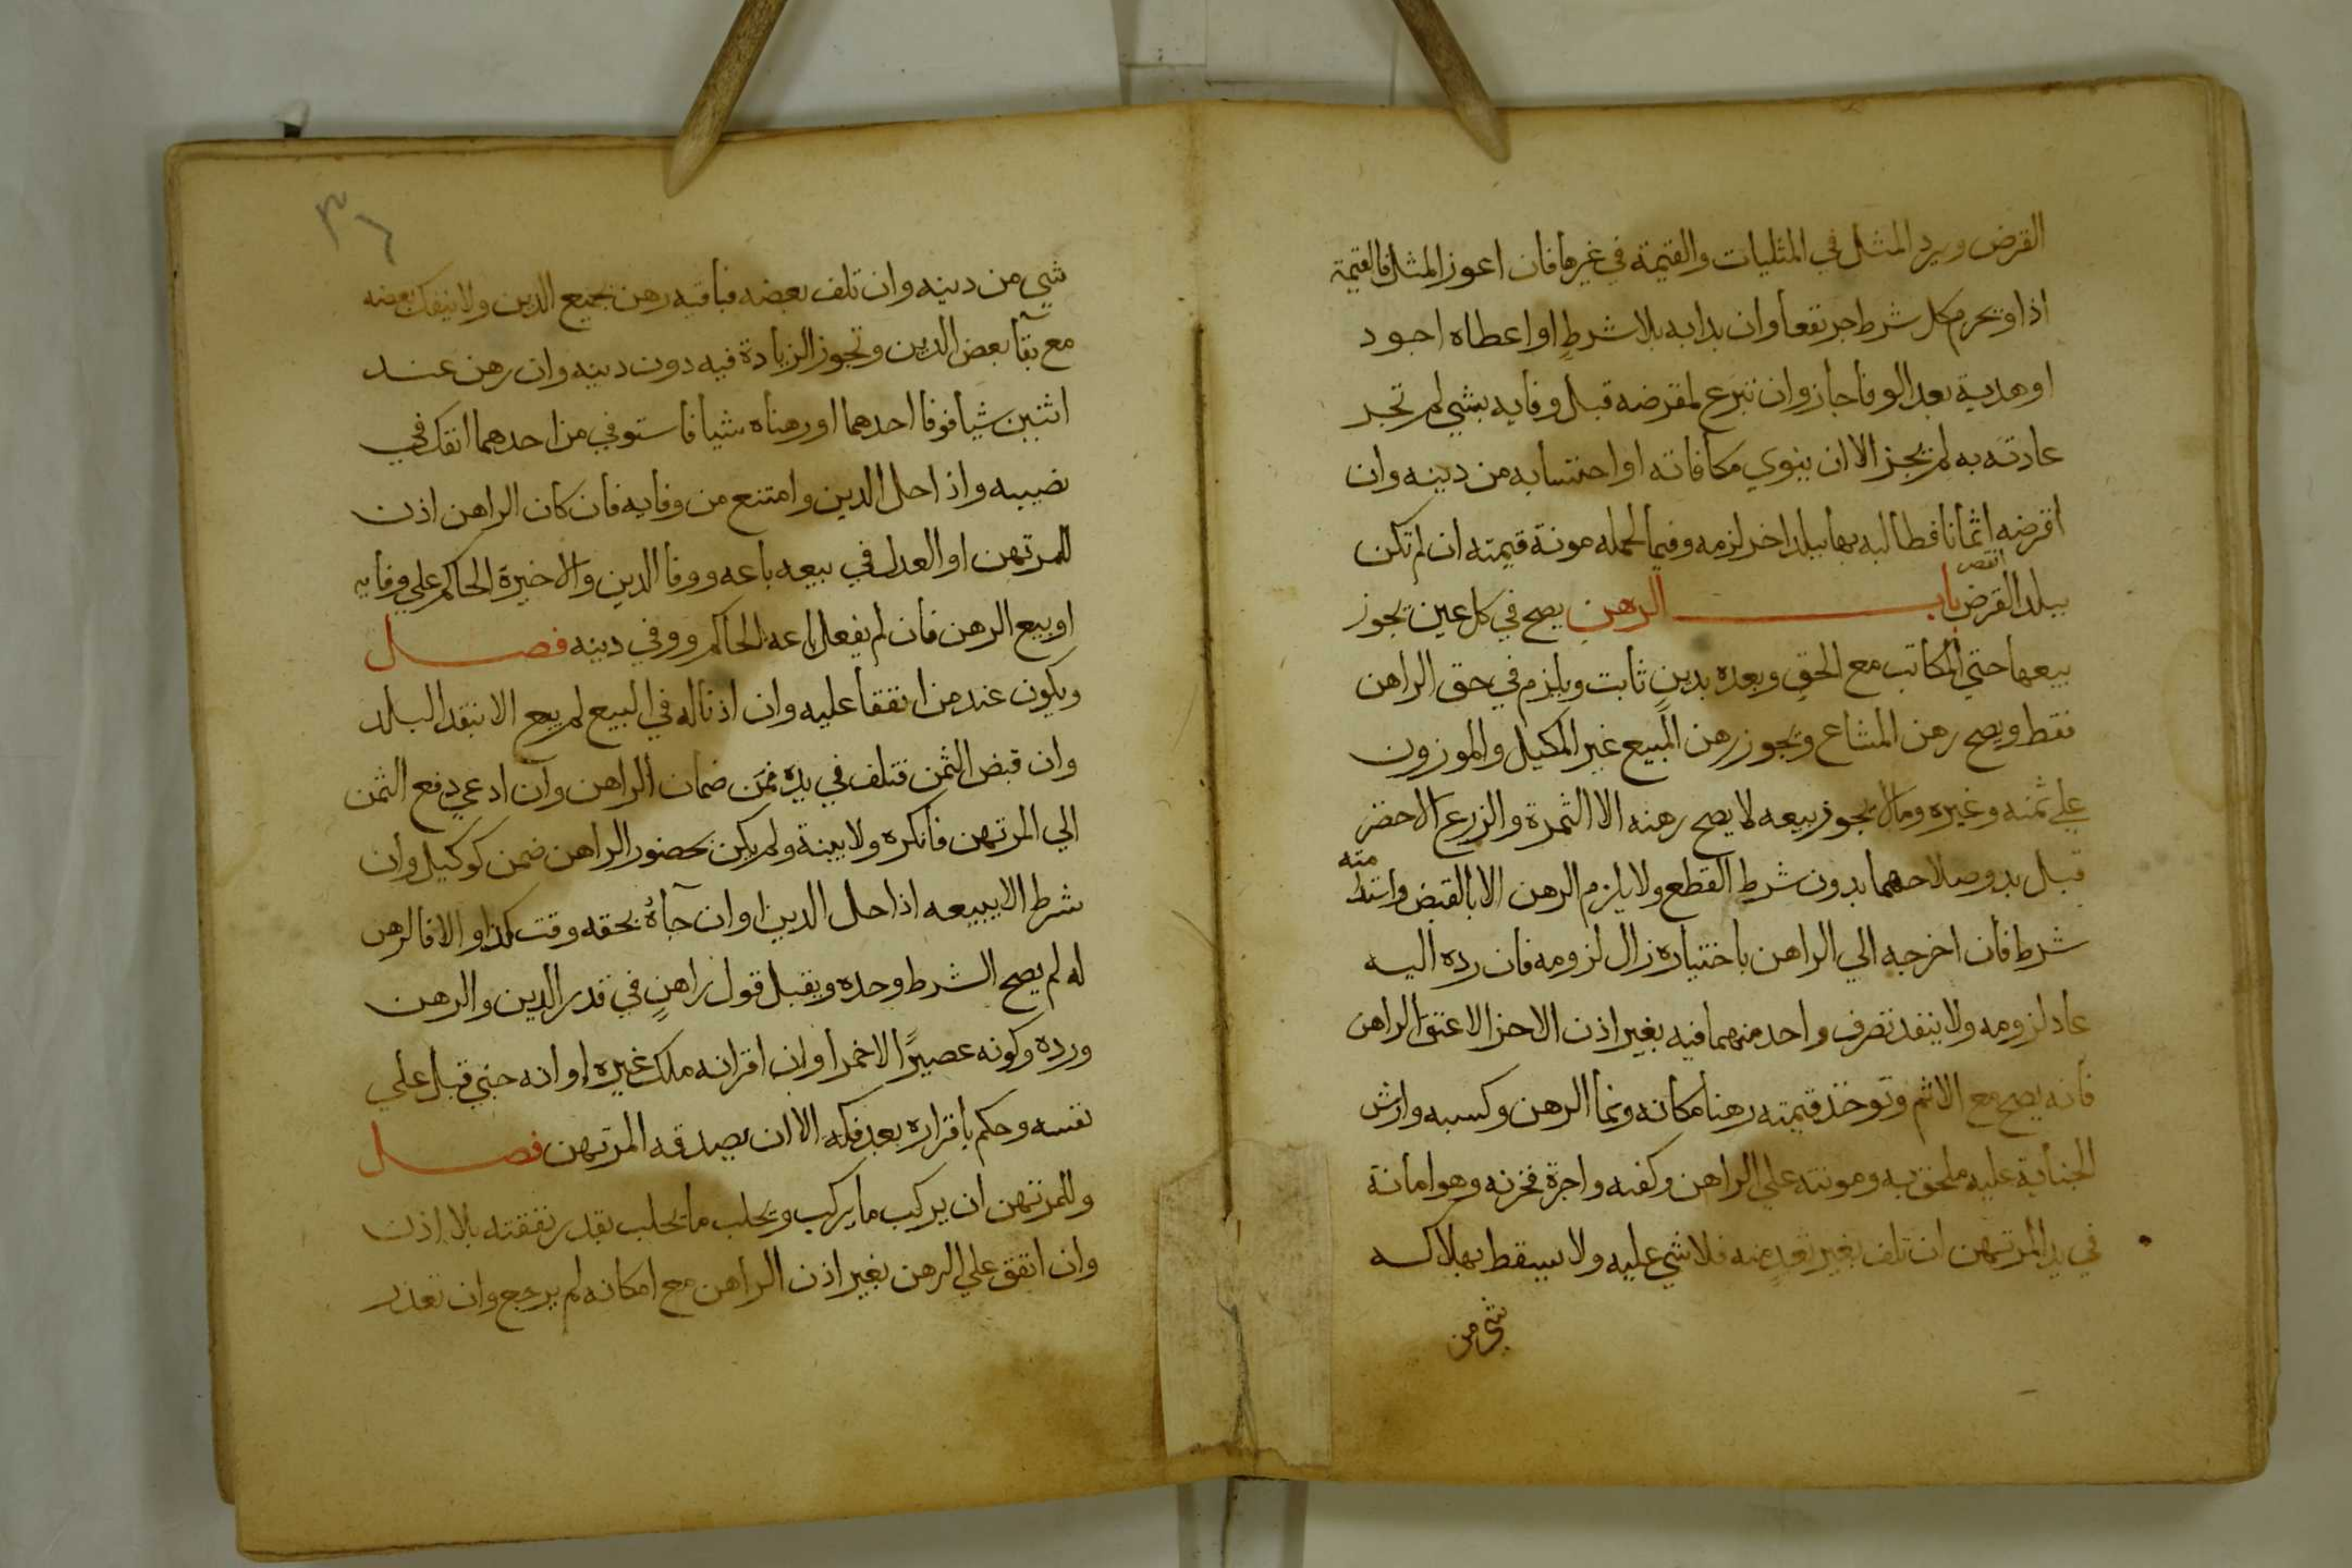 القرض ويرد المثل في المثليات والقيمة في غيرها فان اعوز المثل فالقيمة
اذا ويحرم كل شرط جر نفعا وان بدا به بلا شرطٍ او اعطاه اجود
او هدية بعد الوفا جاز وان تبرع لمقرضه قبل وفايه بشي لم تجر
عادته به لم يجز الا ان ينوي مكافاته او احتسابه من دينه وان
اقرضه اثمانا فطالبه بها ببلد اخر لزمه وفيما لحمله مونة قيمته ان لم تكن
ببلد القرض انقص باب الرهن يصح في كل عين يجوز
بيعها حتي المكاتب مع الحق وبعده بدينٍ ثابت ويلزم في حق الراهن
فقط ويصح رهن المشاع ويجوز رهن المبيع غير المكيل والموزون
علي ثمنه وغيره ومالا يجوز بيعه لا يصح رهنه الا الثمرة والزرع الاخضر
قبل بدو صلاحهما بدون شرط القطع ولا يلزم الرهن الا بالقبض واستدامته
شرط فان اخرجه الي الراهن باختياره زال لزومه فان رده اليه
عاد لزومه ولا ينفذ تصرف واحد منهما فيه بغير اذن الاخر الا عتق الراهن
فانه يصح مع الاثم وتوخذ قيمته رهنا مكانه ونما الرهن وكسبه وارش
الجناية عليه ملحق به ومونته علي الراهن وكفنه واجرة مخزنه وهو امانة
في يد المرتهن ان تلف بغير تعدٍ منه فلا شي عليه ولا يسقط بهلاكه
شي من
٣١
شي من دينه وان تلف بعضه فباقيه رهن بجميع الدين ولا ينفك بعضه
مع بقآ بعض الدين وتجوز الزيادة فيه دون دينه وان رهن عند
اثنين شيا فوفا احدهما او رهناه شيا فاستوفي من احدهما انفك في
نصيبه واذا حل الدين وامتنع من وفايه فان كان الراهن اذن
للمرتهن او العدل في بيعه باعه ووفا الدين والا خيرة الحاكم علي وفايه
او بيع الرهن فان لم يفعل باعه الحاكم ووفي دينه فصل
ويكون عند من اتفقا عليه وان اذنا له في البيع لم يبع الا بنقد البلد
وان قبض الثمن فتلف في يده فمن ضمان الراهن وان ادعي دفع الثمن
الي المرتهن فانكره ولا بينة ولم يكن بحضور الراهن ضمن كوكيل وان
شرط الا يبيعه اذا حل الدين او ان جآه بحقه وقت كذا والا فالرهن
له لم يصح الشرط وحده ويقبل قول راهنٍ في قدر الدين والرهن
ورده وكونه عصيرًا لا خمرا وان اقر انه ملك غيره او انه جني قبل علي
نفسه وحكم باقراره بعد فكه الا ان يصدقه المرتهن فصل
وللمرتهن ان يركب ما يركب ويحلب ما يحلب بقدر نفقته بلا اذن
وان اتفق علي الرهن بغير اذن الراهن مع امكانه لم يرجع وان تعذر